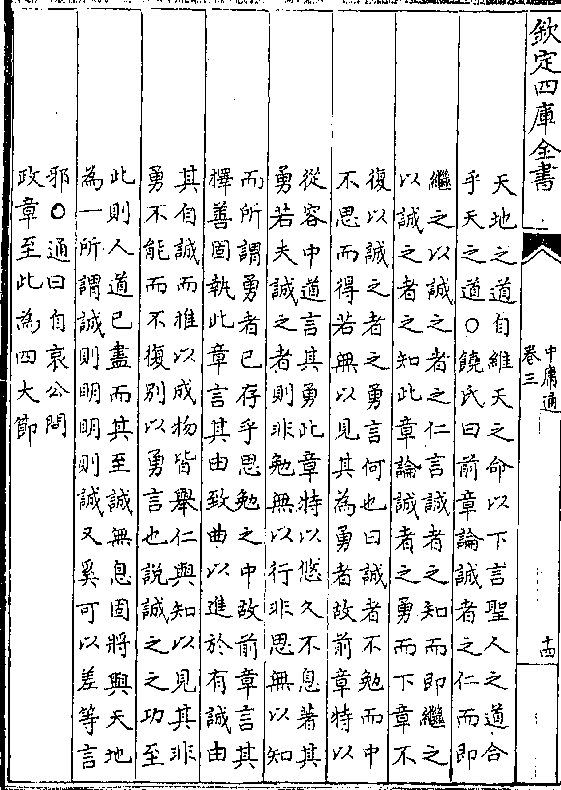 欽定四庫全書
中庸通
卷三
十四
天地之道自維天之命以下言聖人之道合
乎天之道○饒氏曰前章論誠者之仁而即
繼之以誠之者之仁言誠者之知而即繼之
以誠之者之知此章論誠者之勇而下章不
復以誠之者之勇言何也曰誠者不勉而中
不思而得若無以見其為勇者故前章特以
從容中道言其勇此章特以悠久不息著其
勇若夫誠之者則非勉無以行非思無以知
而所謂勇者已存乎思勉之中故前章言其
擇善固執此章言其由致曲以進於有誠由
其自誠而推以成物皆舉仁與知以見其非
勇不能而不復別以勇言也說誠之之功至
此則人道已盡而其至誠無息固將與天地
為一所謂誠則明明則誠又奚可以差等言
邪○通曰自哀公問
政章至此為四大節